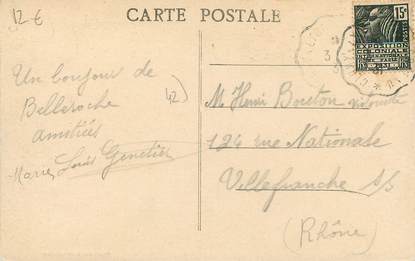 12 €
CARTE POSTALE
15c
POSTES
EXPOSITION
COLONIALE
INTERNATIONALE
PARIS 1931
Un bonjour de
Belleroche
(42)
amitiés
Marie Louis Genetier
M Henri Bouton
124 rue Nationale
Villefranche s/s
(Rhône)